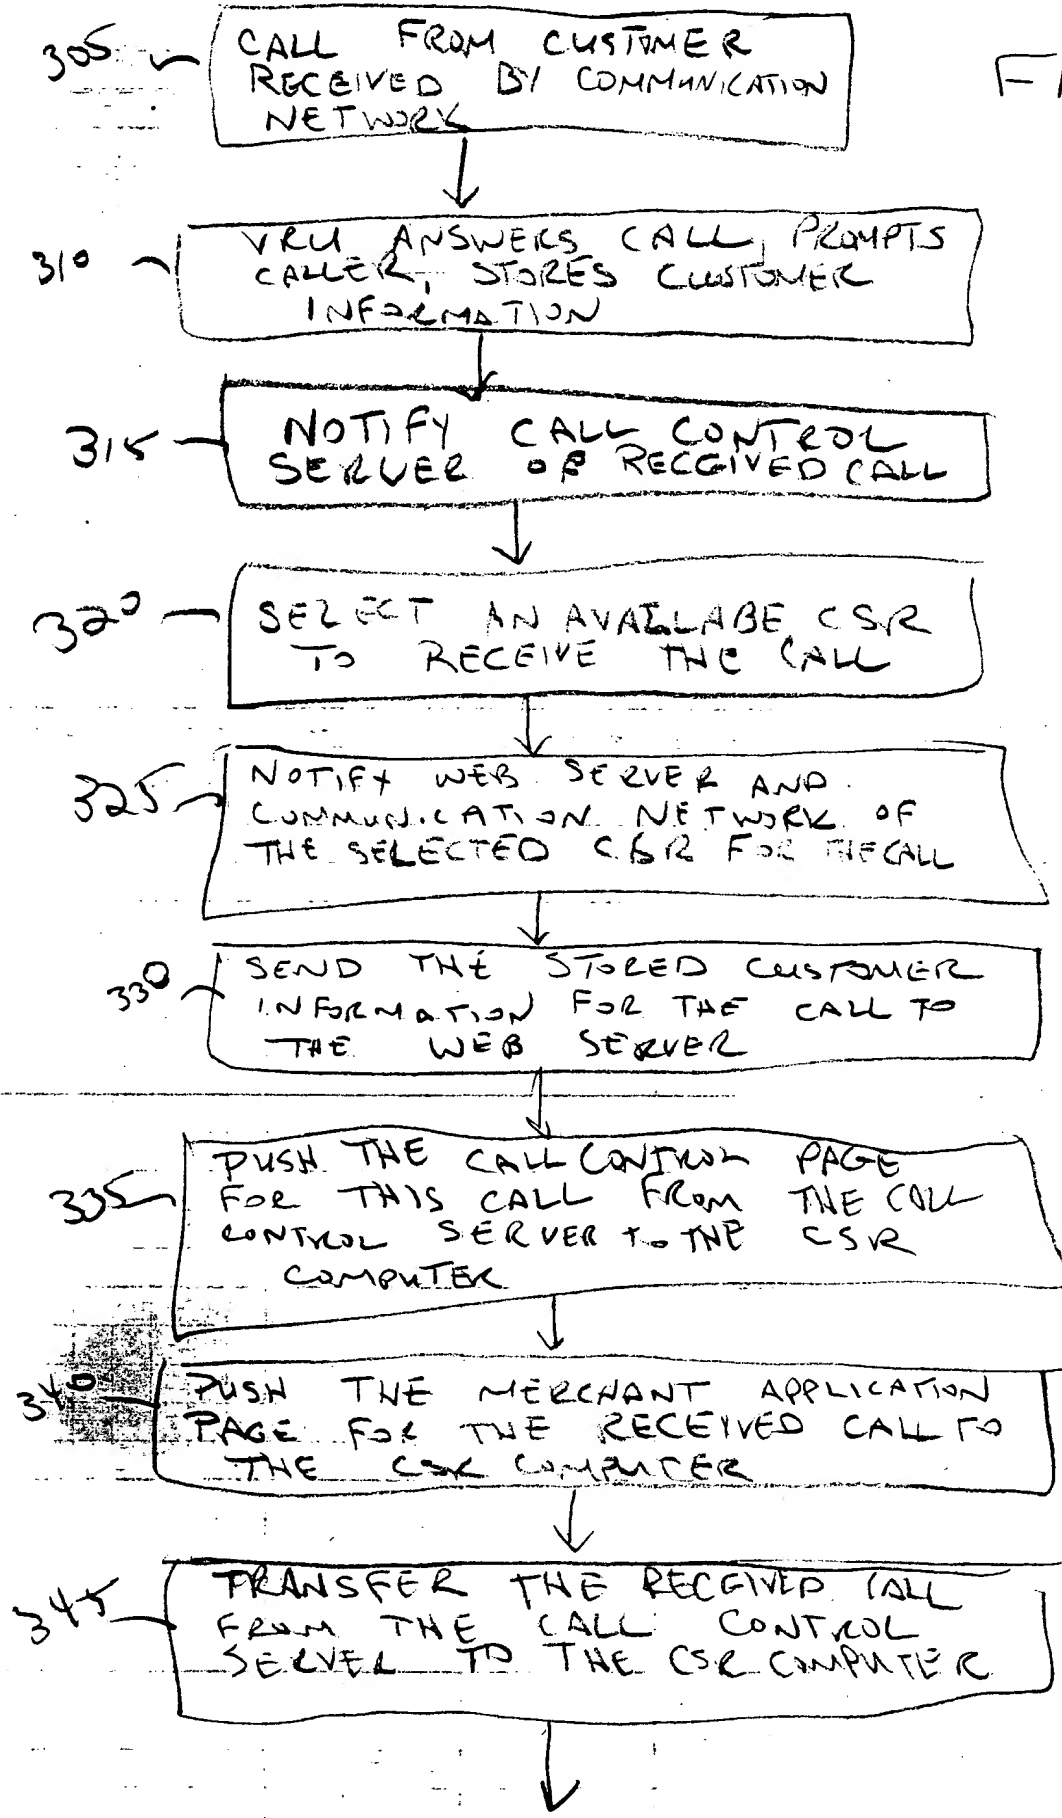 305
CALL FROM CUSTOMER
RECEIVED BY COMMUNICATION
NETWORK
310
VRU ANSWERS CALL, PROMPTS
CALLER, STORES CUSTOMER
INFORMATION
315
NOTIFY CALL CONTROL
SERVER OF RECEIVED CALL
320
SELECT AN AVAILABE CSR
TO RECEIVE THE CALL
325
NOTIFY WEB SERVER AND
COMMUNICATION NETWORK OF
THE SELECTED CSR FOR THE CALL
330
SEND THE STORED CUSTOMER
INFORMATION FOR THE CALL TO
THE WEB SERVER
335
PUSH THE CALL CONTROL PAGE
FOR THIS CALL FROM THE CALL
CONTROL SERVER TO THE CSR
COMPUTER
340
PUSH THE MERCHANT APPLICATION
PAGE FOR THE RECEIVED CALL TO
THE CSR COMPUTER
345
TRANSFER THE RECEIVED CALL
FROM THE CALL CONTROL
SERVER TO THE CSR COMPUTER